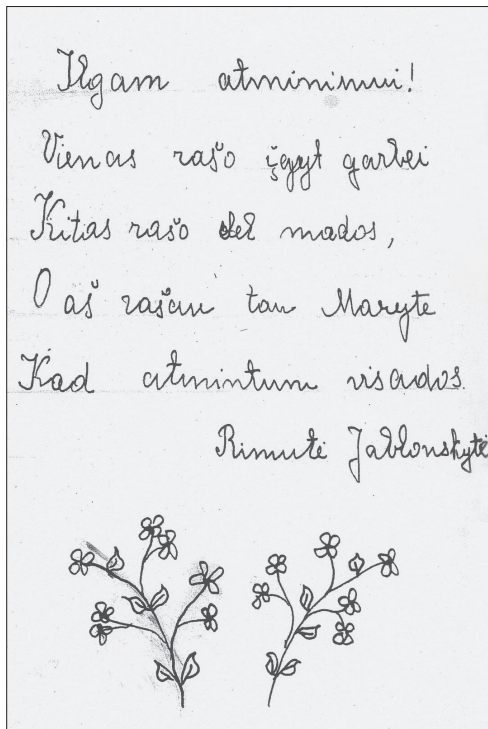 Ilgam atminimui!
Vienas rašo įgyt garbei
Kitas rašo del mados,
O aš rašau tau Maryte
Kad atmintum visados.
Rimutė Jablonskytė